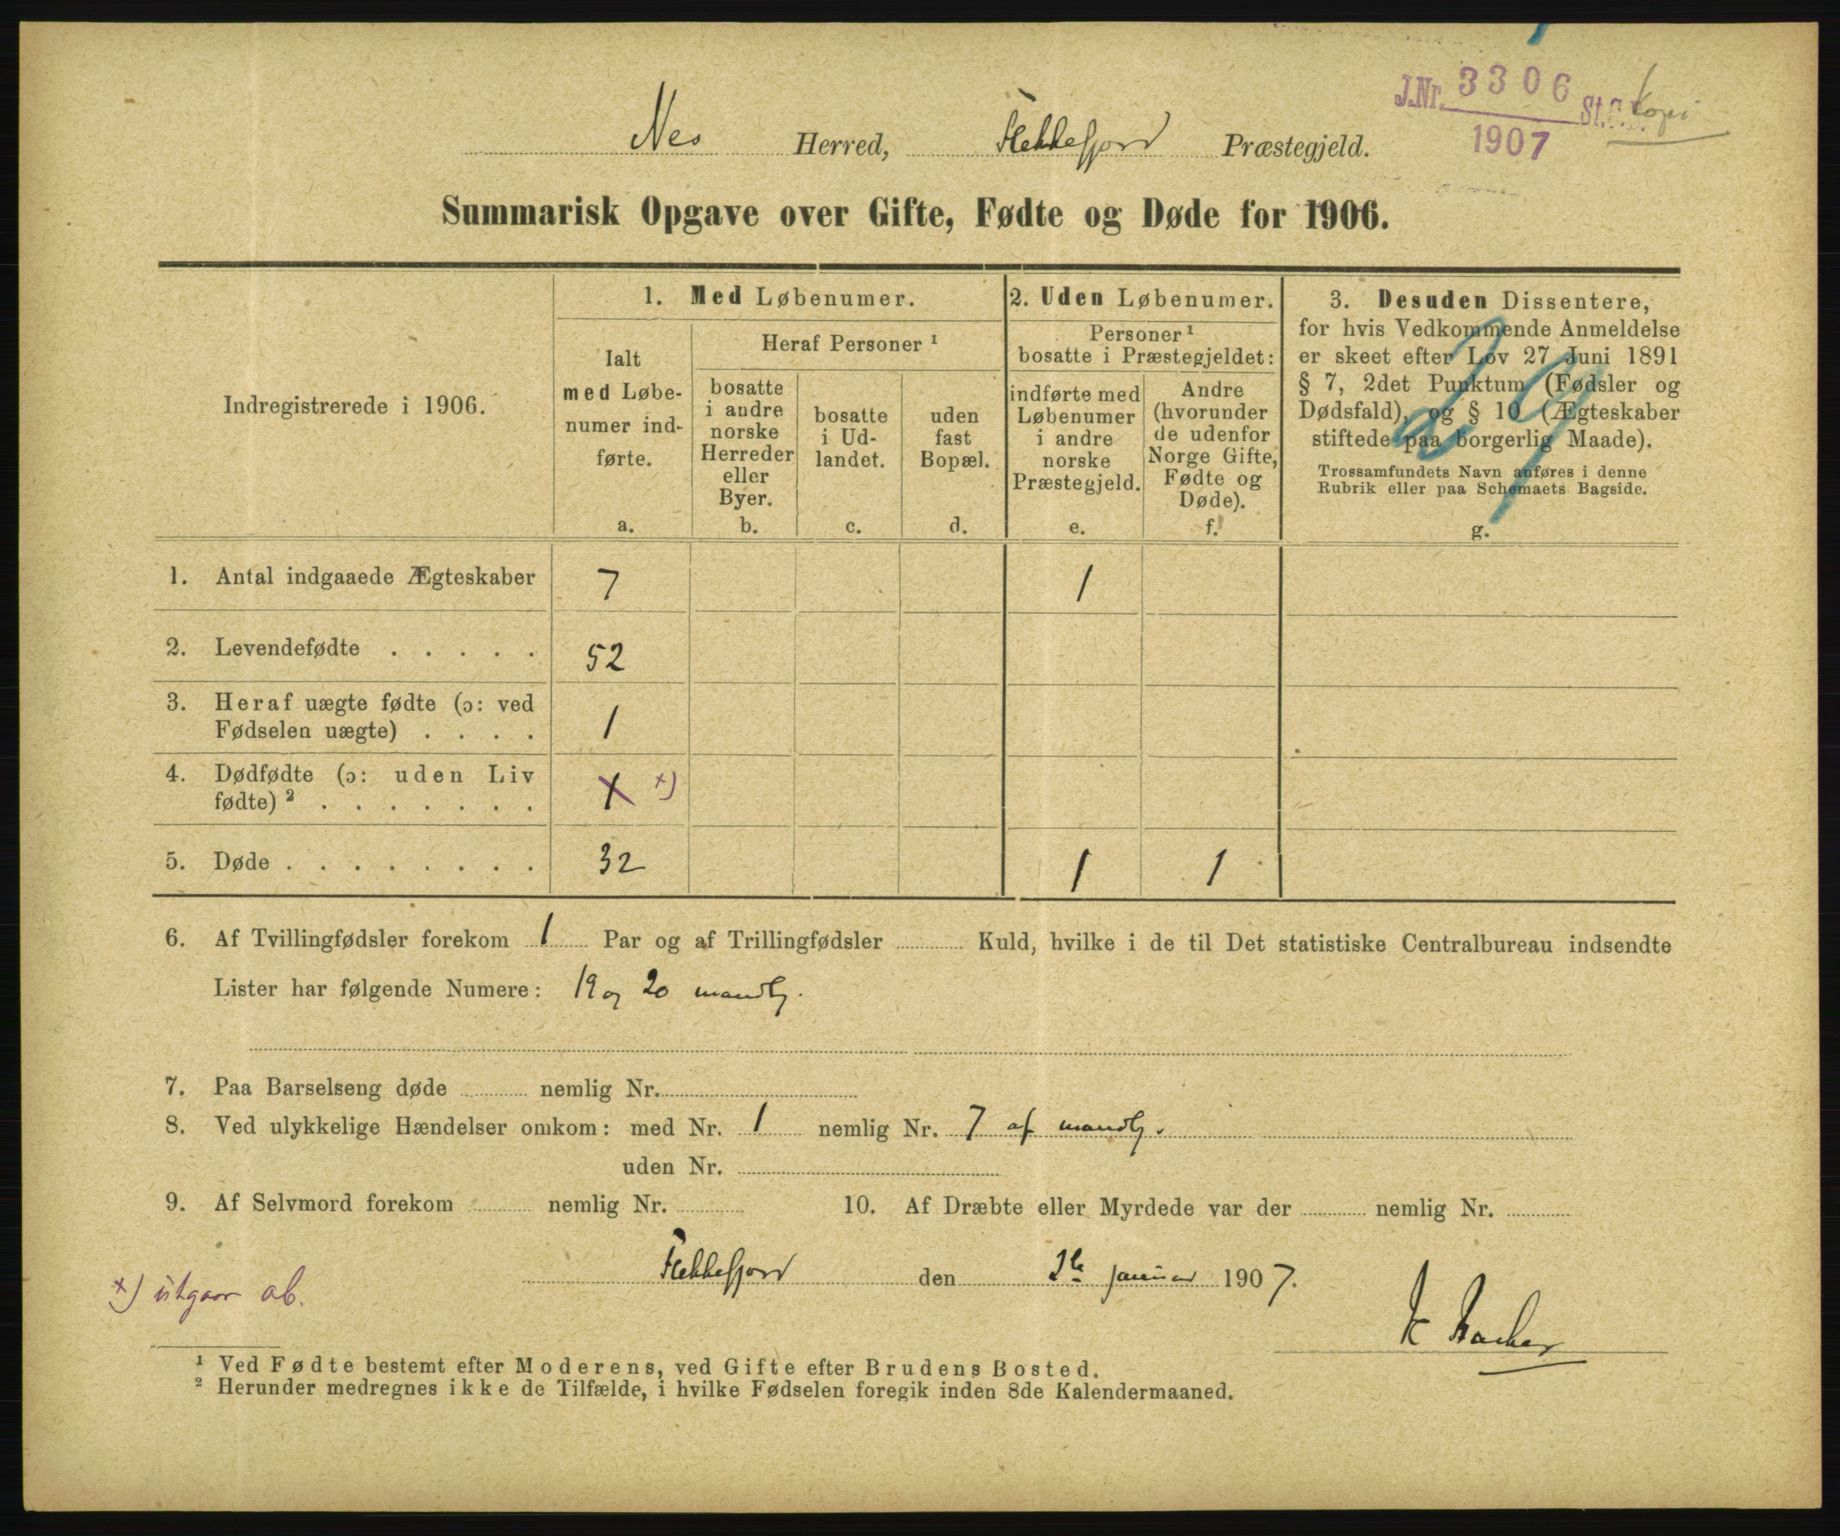 J.Nr. 3306 St.C.B. Kopi
1907
Nes Herred, Flekkefjord Præstegjeld.
Summarisk Opgave over Gifte, Fødte og Døde for 1906.
Indregistrerede i 1906.
1. Med Løbenumer.
Ialt
med Løbe-
numer ind-
førte.
a.
Heraf Personer ¹
bosatte
i andre
norske
Herreder
eller
Byer.
b.
bosatte
i Ud-
landet.
c.
uden
fast
Bopæl.
d.
2. Uden Løbenumer.
Personer ¹
bosatte i Præstegjeldet:
indførte med
Løbenumer
i andre
norske
Præstegjeld.
e.
Andre
(hvorunder
de udenfor
Norge Gifte,
Fødte og
Døde).
f.
3. Desuden Dissentere,
for hvis Vedkommende Anmeldelse
er skeet efter Lov 27 Juni 1891
§ 7, 2det Punktum (Fødsler og
Dødsfald), og § 10 (Ægteskaber
stiftede paa borgerlig Maade).
Trossamfundets Navn anføres i denne
Rubrik eller paa Schemaets Bagside.
g.
29
1. Antal indgaaede Ægteskaber 7 1
2. Levendefødte . . . . . 52
3. Heraf uægte fødte (ɔ: ved
Fødselen uægte) . . . . 1
4. Dødfødte (ɔ: uden Liv
fødte) ² . . . . . . . 1 ×)
5. Døde . . . . . . . . 32 1 1
6. Af Tvillingfødsler forekom 1 Par og af Trillingfødsler Kuld, hvilke i de til Det statistiske Centralbureau indsendte
Lister har følgende Numere: 19 og 20 mandlg.
7. Paa Barselseng døde nemlig Nr.
8. Ved ulykkelige Hændelser omkom: med Nr. 1 nemlig Nr. 7 af mandlg.
uden Nr.
9. Af Selvmord forekom nemlig Nr. 10. Af Dræbte eller Myrdede var der nemlig Nr.
Flekkefjord den januar 1907.
×) utgaar ab.
¹ Ved Fødte bestemt efter Moderens, ved Gifte efter Brudens Bosted.
² Herunder medregnes ikke de Tilfælde, i hvilke Fødselen foregik inden 8de Kalendermaaned.